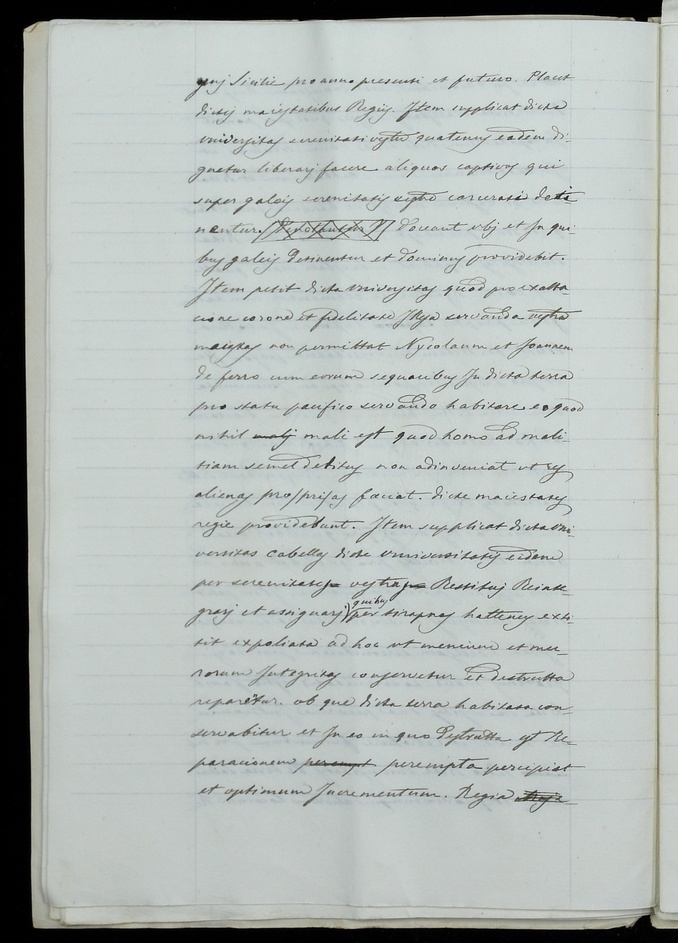 gnj Sicilie pro anno presenti et futuro. Placet
dictis maiestatibus Regijs. Item supplicat dicta
vniversitas serenitati vestre quatenus eadem di-
gnetur liberarj facere aliquos captivos qui
super galeis serenitatis vestre carcerati deti-
nentur. doceant vbj et In qui-
bus galeis Detinentur et dominus providebit.
Item petit dicta vniversitas quod pro exalta-
cione corone et fidelitate Itaja servanda vestra
maiestas non permittat Nycolaum et Joannem
de ferro cum eorum sequacibus In dicta terra
pro statu pacifico servando habitare eo quod
nihil malj mali est quod homo ad mali-
tiam semel deditus non adinveniat vt res
alienas proprias faciat. dicte maiestates
regie providebunt. Item supplicat dicta vni-
versitas cabellas dicte vniversitatis eidem
per serenitatem vestram Restituj Reinte-
grarj et assignarj quibus per tirapnos hattenus exti-
tit expoliata ad hoc vt menium et mu-
rorum Integritas conservetur et destrutta
reparetur. ob que dicta terra habitata con-
servabitur et In eo in quo Destrutta est Re-
paracionem perempt perempta percipiet
et optimum Incrementum. Regia